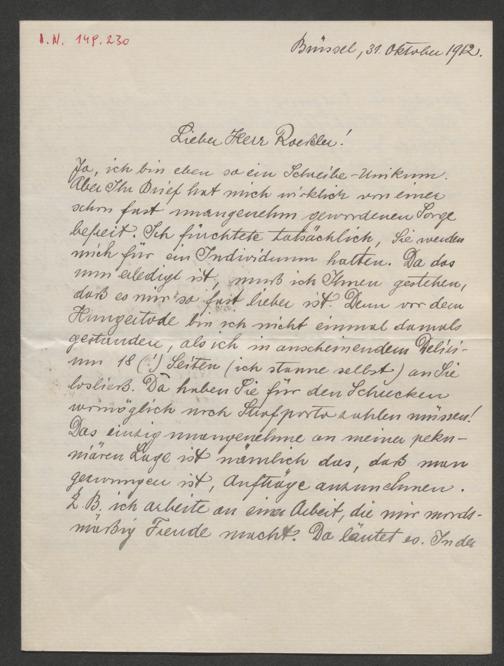 I.N. 149.230
Brüssel, 31. Oktober 1912.
Lieber Herr Roessler!
Ja, ich bin eben so ein Schreibe-Unikum.
Aber Ihr Brief hat mich wirklich von einer
schon fast unangenehm gewordenen Sorge
befreit. Ich fürchtete tatsächlich, Sie werden
mich für ein Individuum halten. Da das
nun erledigt ist, muß ich Ihnen gestehen,
daß es mir so fast lieber ist. Denn vor dem
Hungertode bin ich nicht einmal damals
gestanden, als ich in anscheinendem Deliri-
um 18 (!) Seiten (ich staune selbst) an Sie
losließ. Da haben Sie für den Schrecken
womöglich noch Strafporto zahlen müssen!
Das einzig unangenehme an meiner peku-
niären Lage ist nämlich das, daß man
gezwungen ist, Aufträge anzunehmen.
Z B. ich arbeite an einer Arbeit, die mir mords-
mäßig Freude macht. Da läutet es. In der